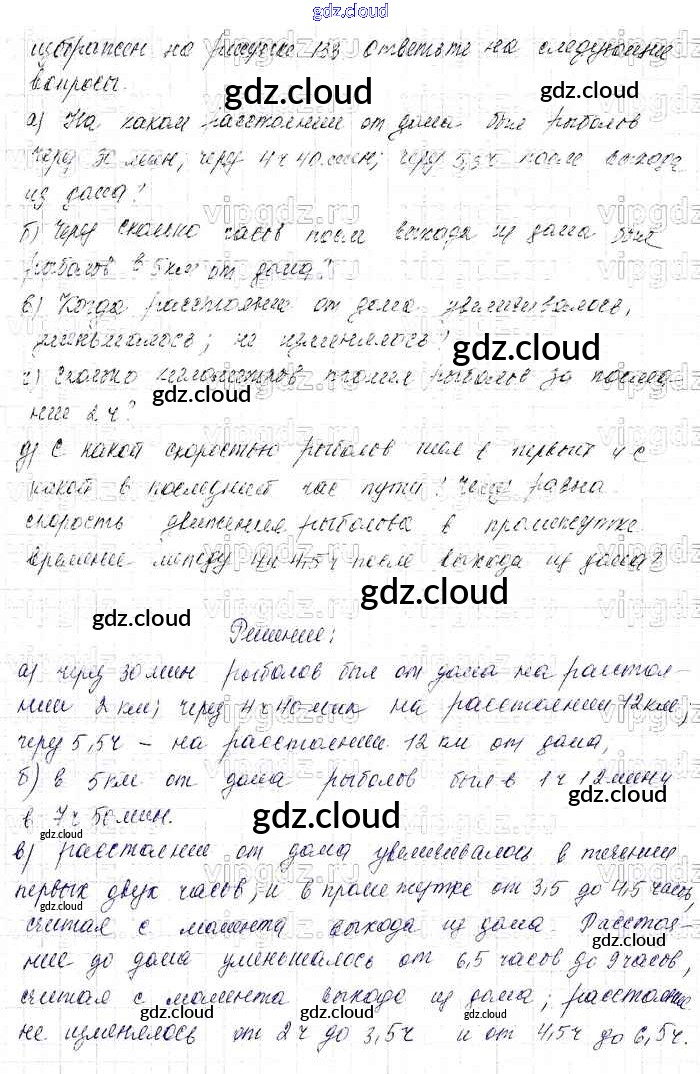 gdz.cloud
изображен на рисунке 133 ответьте на следующие
вопросы.
а) На каком расстоянии от дома был рыболов
через 30 мин; через 4ч 40мин; через 5,5ч после выхода
из дома?
б) Через сколько часов после выхода из дома был
рыболов в 5км от дома?
в) Когда расстояние от дома увеличивалось,
уменьшалось; не изменялось?
г) Сколько километров прошел рыболов за послед-
ние 2ч?
д) С какой скоростью рыболов шел в первый ч с
какой в последний час пути? Чему равна
скорость движения рыболова в промежутке
времени между 4 и 4,5ч после выхода из дома?
Решение:
а) через 30мин рыболов был от дома на расстоя-
нии 2км; через 4ч40мин на расстоянии 12км,
через 5,5ч – на расстоянии 12км от дома,
б) в 5км от дома рыболов был в 1ч 12мин и
в 7ч 50мин.
в) расстояние от дома увеличивалось в течении
первых двух часов, и в промежутке от 3,5 до 4,5 часов,
считая с момента выхода из дома. Расстоя-
ние до дома уменьшалось от 6,5 часов до 9 часов,
считая с момента выхода из дома; расстояние
не изменялось от 2ч до 3,5ч и от 4,5ч до 6,5ч.